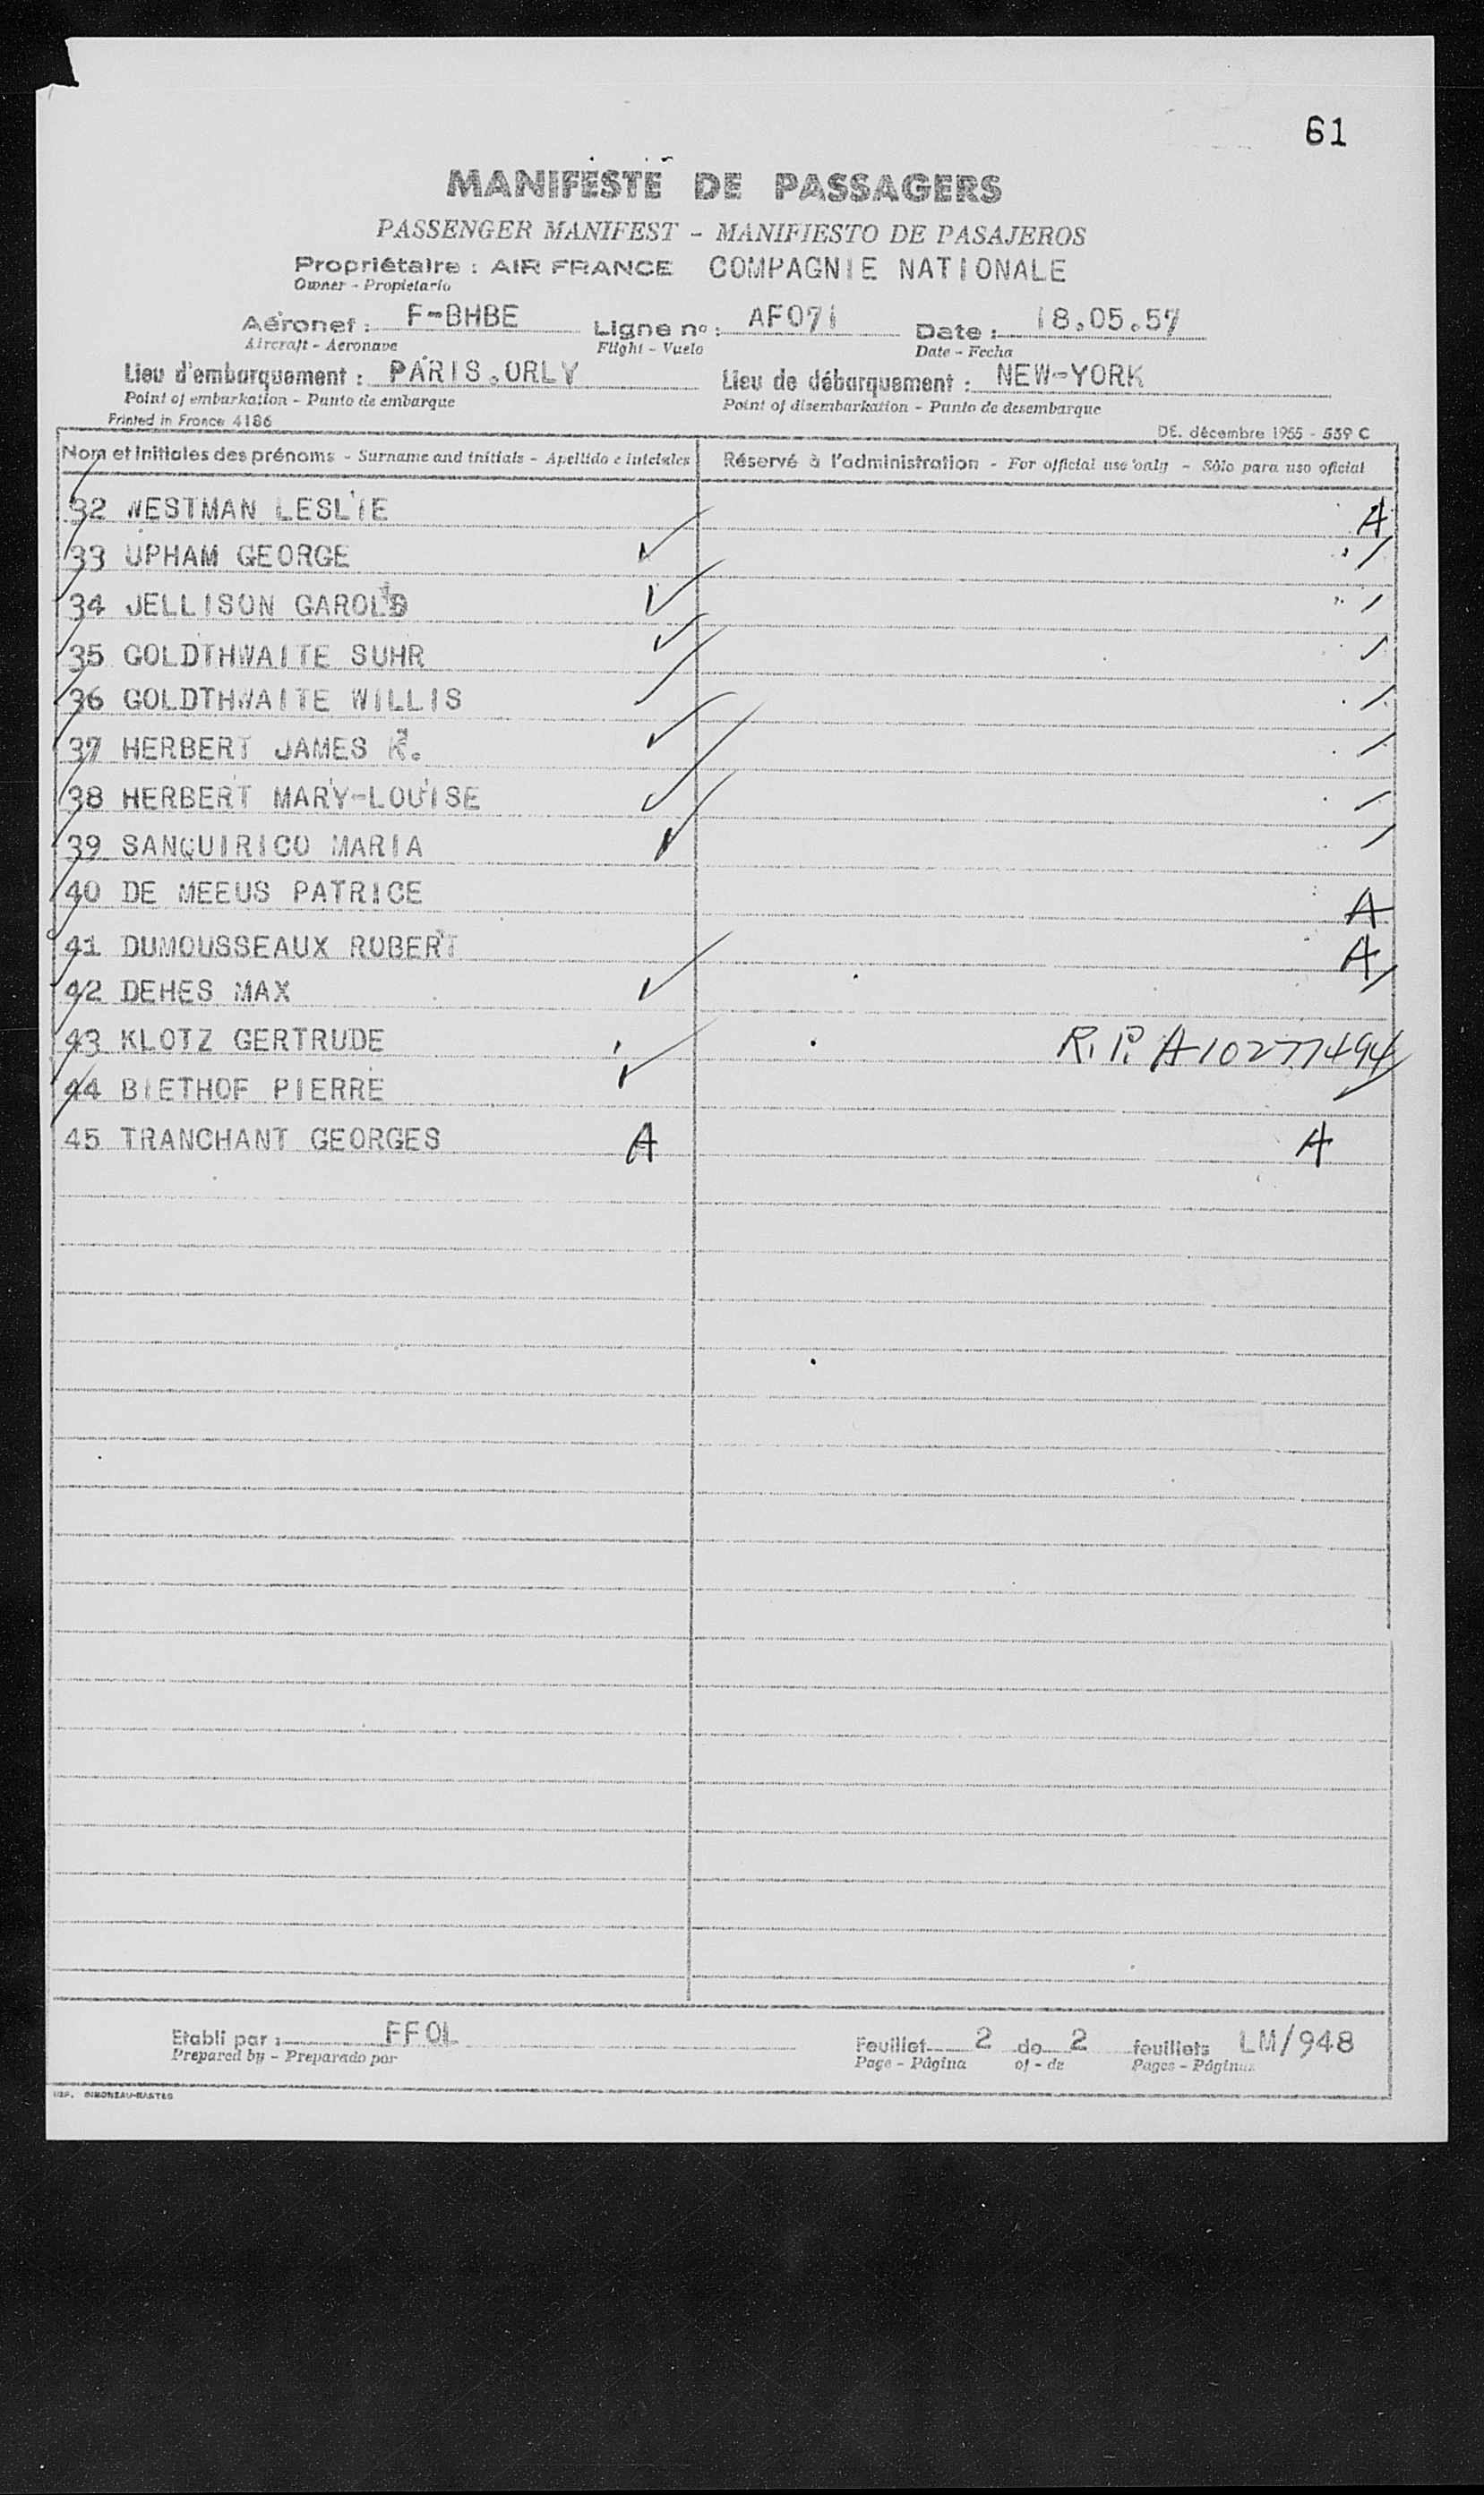 61
MANIFESTE DE PASSAGERS
PASSENGER MANIFEST - MANIFIESTO DE PASAJEROS
Propriétaire : AIR FRANCE COMPAGNIE NATIONALE
Owner - Propietario
Aéronef : F-BHBE Ligne nº : AF071 Date : 18.05.57
Aircraft - Aeronave Flight - Vuelo Date - Fecha
Lieu d'embarquement : PARIS.ORLY Lieu de débarquement : NEW-YORK
Point of embarkation - Punto de embarque Point of disembarkation - Punto de desembarque
Printed in France 4186 DE. décembre 1955 - 559 C
Nom et initiales des prénoms - Surname and initials - Apellido e iniciales Réservé à l'administration - For official use only - Sólo para uso oficial
32 WESTMAN LESLIE A
33 UPHAM GEORGE
34 JELLISON GAROLD
35 GOLDTHWAITE SUHR
36 GOLDTHWAITE WILLIS
37 HERBERT JAMES K.
38 HERBERT MARY-LOUISE
39 SANQUIRICO MARIA
40 DE MEEUS PATRICE A
41 DUMOUSSEAUX ROBERT A
42 DEHES MAX
43 KLOTZ GERTRUDE R.P. A10277494
44 BIETHOF PIERRE
45 TRANCHANT GEORGES A A
Etabli par : FFOL Feuillet 2 de 2 feuillets LM/948
Prepared by - Preparado por Page - Página of - de Pages - Páginas
IMP. SIMONEAU-NANTES